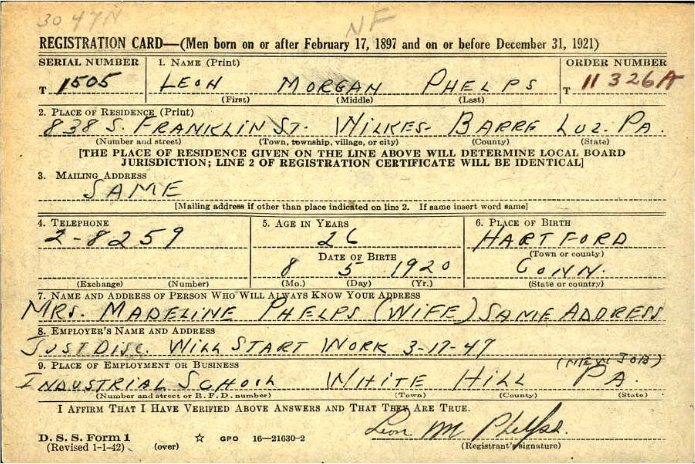 30 47N NF
REGISTRATION CARD—(Men born on or after February 17, 1897 and on or before December 31, 1921)
SERIAL NUMBER 1. NAME (Print) ORDER NUMBER
T 1505 LEON MORGAN PHELPS T 11326A
(First) (Middle) (Last)
2. PLACE OF RESIDENCE (Print)
838 S. FRANKLIN ST. WILKES-BARRE LUZ. PA.
(Number and street) (Town, township, village, or city) (County) (State)
[THE PLACE OF RESIDENCE GIVEN ON THE LINE ABOVE WILL DETERMINE LOCAL BOARD
JURISDICTION; LINE 2 OF REGISTRATION CERTIFICATE WILL BE IDENTICAL]
3. MAILING ADDRESS
SAME
[Mailing address if other than place indicated on line 2. If same insert word same]
4. TELEPHONE 5. AGE IN YEARS 6. PLACE OF BIRTH
2-8259 26 HARTFORD
DATE OF BIRTH (Town or county)
8 5 1920 CONN.
(Exchange) (Number) (Mo.) (Day) (Yr.) (State or country)
7. NAME AND ADDRESS OF PERSON WHO WILL ALWAYS KNOW YOUR ADDRESS
MRS. MADELINE PHELPS (WIFE) SAME ADDRESS
8. EMPLOYER'S NAME AND ADDRESS
JUST DISC. WILL START WORK 3-17-47
9. PLACE OF EMPLOYMENT OR BUSINESS (NEW JOB)
INDUSTRIAL SCHOOL WHITE HILL PA.
(Number and street or R. F. D. number) (Town) (County) (State)
I AFFIRM THAT I HAVE VERIFIED ABOVE ANSWERS AND THAT THEY ARE TRUE.
Leon M Phelps
D. S. S. Form 1 GPO 16—21630-2 (Registrant's signature)
(Revised 1-1-42) (over)